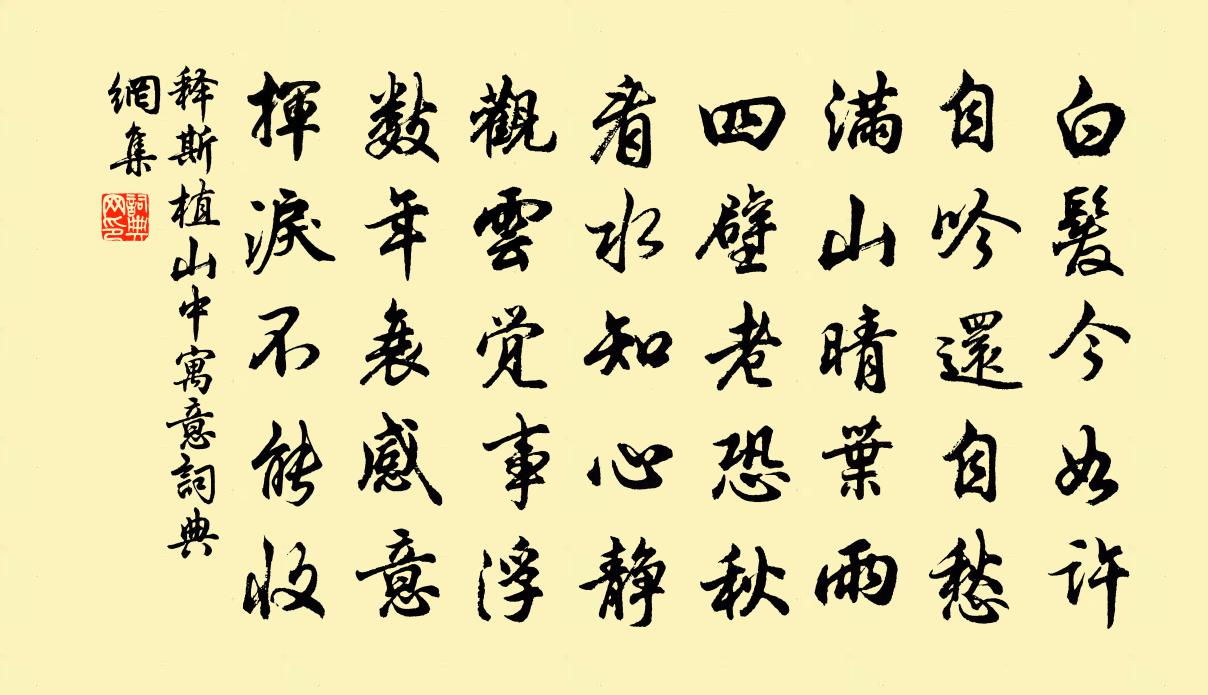 白髮今如許
自吟還自愁
滿山晴葉雨
四壁老恐秋
看水知心静
觀雲覚事浮
数年衰感意
揮淚不能收
释斯植山中寓意詞典
網集
詞典
网印